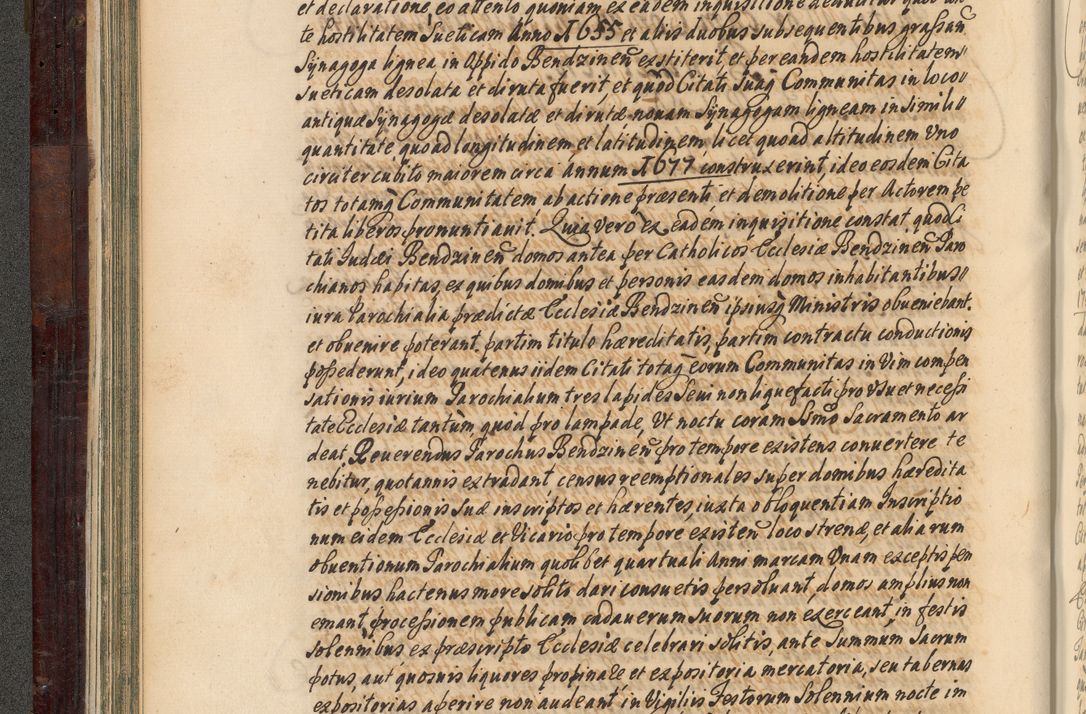 et declaratione, eo attento quoniam ex eadem inquisitione deducitur quod an
te hostilitatem Sueticam Anno 1655 et aliis duobus subsequentibus grassan
Synagoga lignea in Oppido Bendzineñ exstiterit, et per eandem hostilitatem
Sueticam desolata et diruta fuerit, et quod Citati suaq̃ Communitas in loco
antiquæ Synagogæ desolatæ et dirutæ novam Synagogam ligneam in simili
quantitate quoad longitudinem et latitudinem, licet quoad altitudinem Uno
circiter cubito maiorem circa Annum 1677 construxerint, ideo eosdem Cita
tos totamq̃ Communitatem ab actione præsenti et demolitione per Actorem pe
tita liberos pronuntiavit. Quia vero ex eadem inquisitione constat, quod Ci
tati Judæi Bendzineñ domos antea per Catholicos Ecclesiæ Bendzineñ Paro
chianos habitas, ex quibus domibus et personis easdem domos inhabitantibus
iura Parochialia prædictæ Ecclesiæ Bendzineñ ipsiusq̃ Ministris obveniebant.
et obvenire poterant, partim titulo hæreditatis, partim contractu conductionis
possederunt, ideo quatenus iidem Citati totaq̃ eorum Communitas in Vim compen
sationis iurium Parochialium tres lapides Sevi non liquefacti pro Usu et necessi
tate Ecclesiæ tantum quod pro lampade, Ut noctu coram Ssmo Sacramento ar
deat, Reverendus Parochus Bendzineñ pro tempore existens convertere te
nebitur, quotannis extradant, census reemptionales super domibus hæredita
tis et possessionis suæ inscriptos et hærentes, iuxta obloquentiam Inscriptio
num eidem Ecclesiæ et Vicario pro tempore existeñ loco strenæ, et aliarum
obventionum Parochialium quolibet quartuali Anni marcam Unam exceptis pen
sionibus hactenus more solito dari consuetis persolvant, domos amplius non
emant, processionem publicam cadaverum suorum non exerceant, in festis
solennibus ex præscripto Ecclesiæ celebrari solitis, ante Summum Sacrum
potus, aut quosvis liquores propinare et expositoria mercatoria, seu tabernas
expositorias aperire non audeant, in Vigiliis Festorum Solennium nocte im